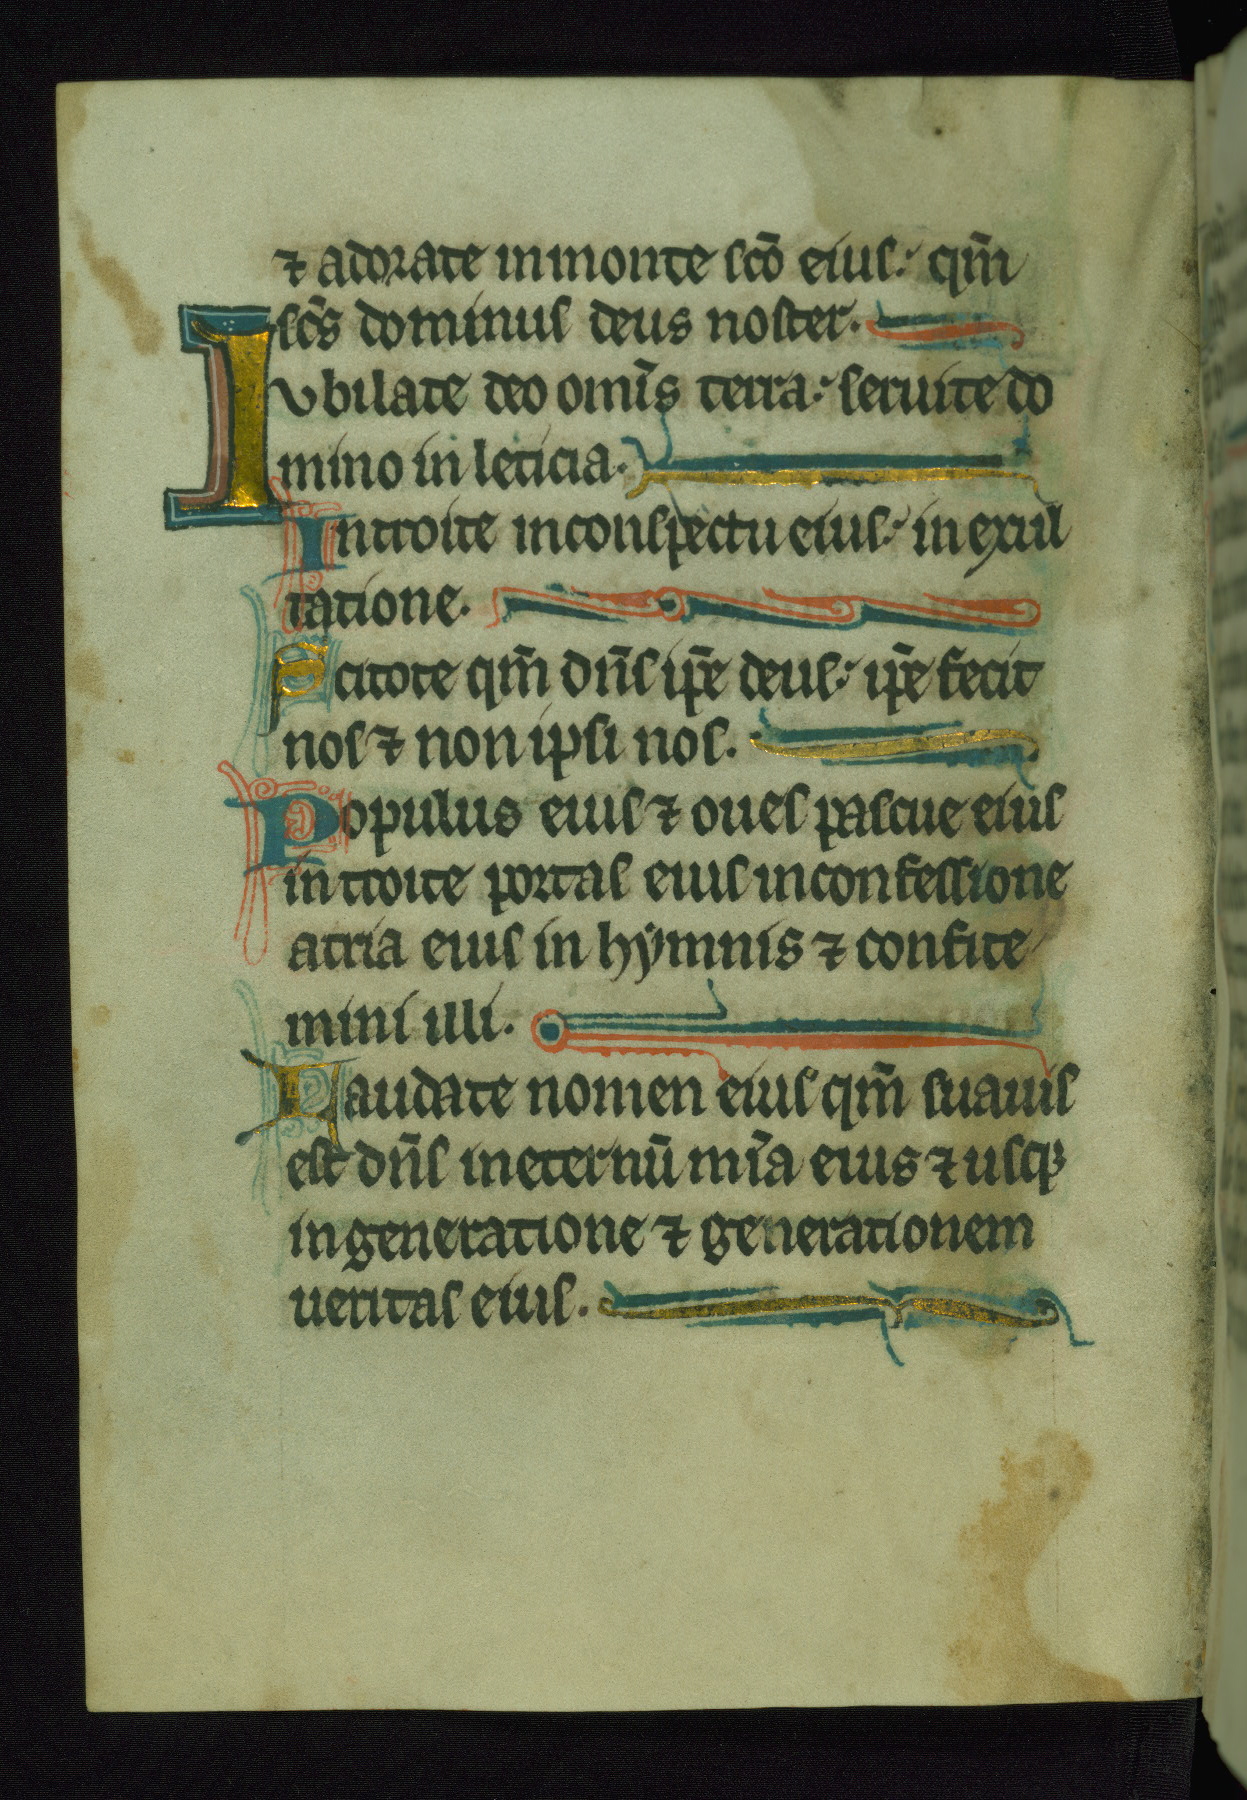 ⁊ adorate in monte sc̄o eius: qm̄
sc̄s dominus deus noster.
Iubilate deo omīs terra: seruite do
mino in leticia.
Introite in conspectu eius: in exul
tatione.
Scitote qm̄ dn̄s ip̄e deus: ip̄e fecit
nos ⁊ non ipsi nos.
Populus eius ⁊ oues pascue eius
introite portas eius in confessione
atria eius in hẏmnis ⁊ confite
mini illi.
Laudate nomen eius qm̄ suauis
est dn̄s in eternū mīa eius ⁊ usqꝫ
in generatione ⁊ generationem
ueritas eius.